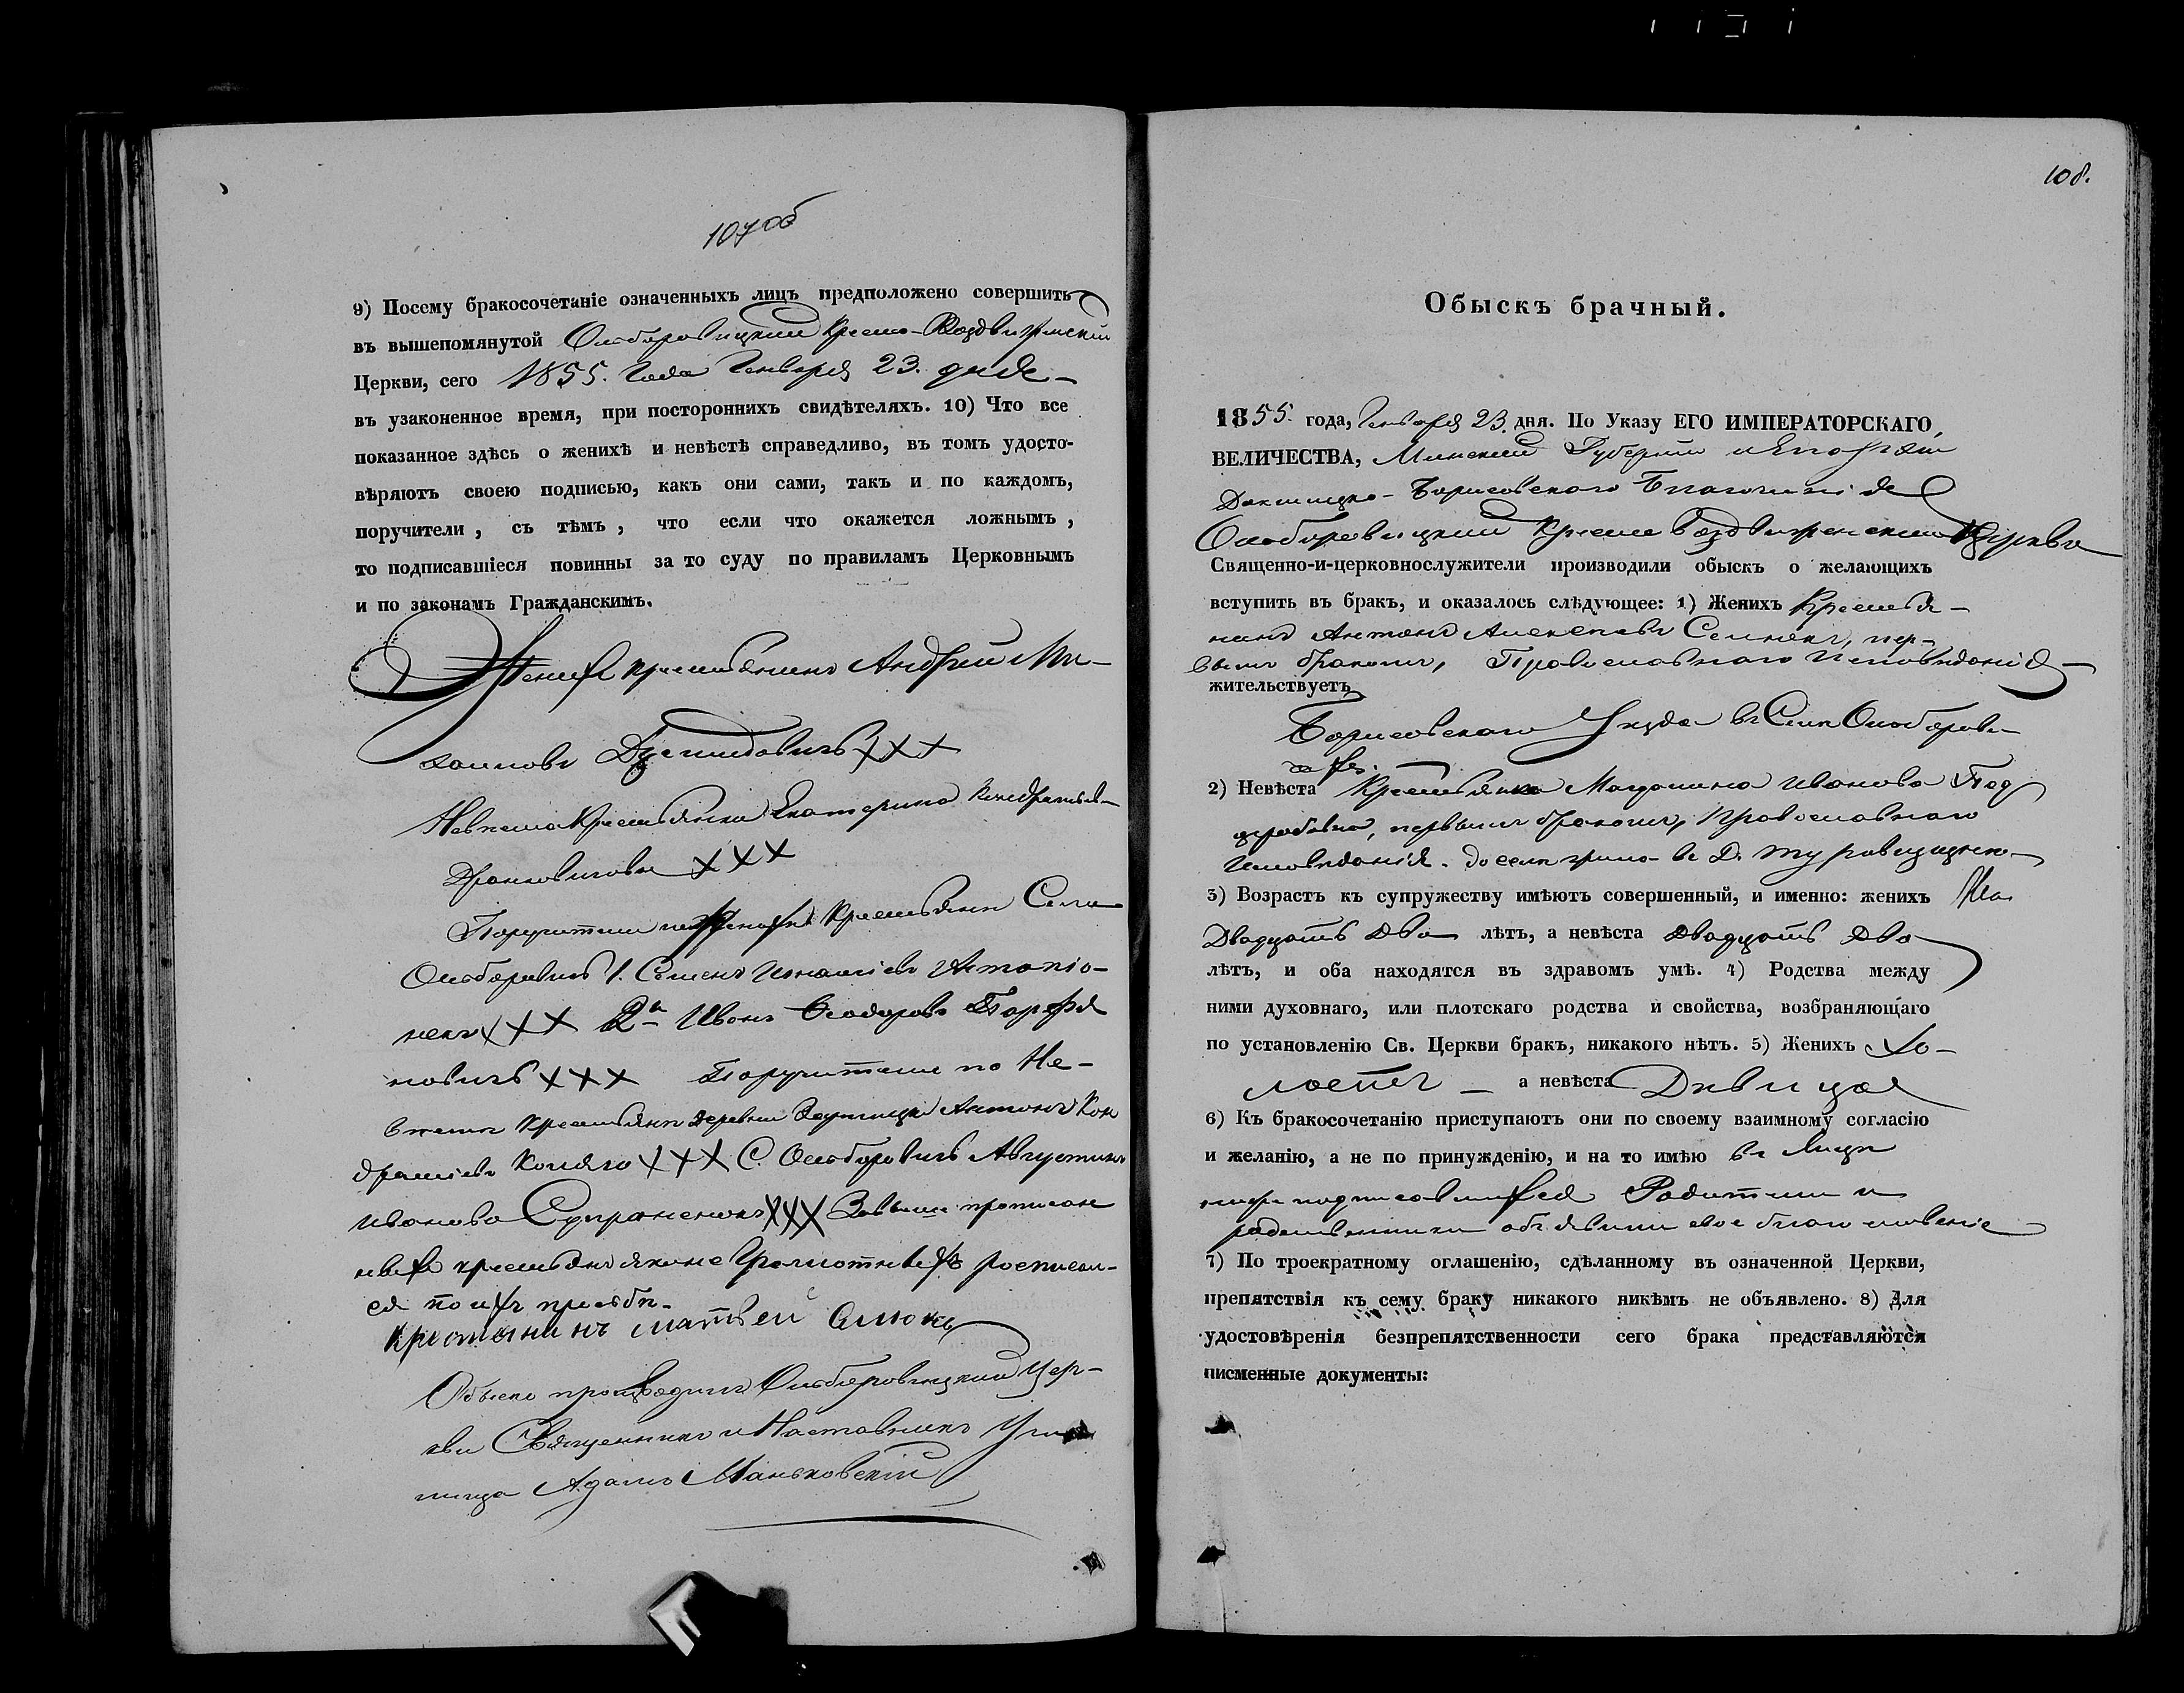 107об
9) Посему бракосочетаніе означенныхъ лицъ предположено совершить
въ вышепомянутой Кресто-Воздвиженской
Церкви, сего 1855. Года Генваря 23. дня
въ узаконенное время, при постороннихъ свидѣтеляхъ. 10) Что все
показанное здѣсь о женихѣ и невѣстѣ справедливо, въ томъ удосто-
вѣряютъ своею подписью, какъ они сами, такъ и по каждомъ,
поручители, съ тѣмъ, что если что окажется ложнымъ,
то подписавшіеся повинны за то суду по правиламъ Церковнымъ
и по законамъ Гражданскимъ.
Женихъ крестьянинъ Андрей Ми-
хаиловъ XXX
Невѣста Крестьянка Екатерина Кондратьева
XXX
Поручители по женихѣ Крестьяне Села
1. Семенъ Игнатіевъ Антонѣо-
некъ XXX 2й Иванъ Ѳеодоровъ Парфя
новичъ XXX Поручители по Не-
вѣстѣ Крестьяне деревни Антонъ Кон
дратіевъ XXX С. Августинъ
Ивановъ XXX За выше прописан
ныхъ крестьянъ яко не Грамотныхъ росписал-
ся по ихъ прозьбѣ
крестянинъ матвей
Обыскъ производилъ Цер-
кви Священникъ и Наставникъ Учи
лища Адамъ Маньковскій
108.
Обыскъ брачный.
1855. года, Генваря 23. дня. По Указу ЕГО ИМПЕРАТОРСКАГО
ВЕЛИЧЕСТВА, Минской Губерніи и Епархіи
Докшицко-Борисовскаго Благочинія
Кресто Воздвиженской Церкви
Священно-и-церковнослужители производили обыскъ о желающихъ
вступить въ бракъ, и оказалось слѣдующее: 1) Женихъ Крестья-
нинъ Антонъ Алексѣевъ пер-
вымъ бракомъ, Православнаго Исповѣданія
жительствуетъ
Борисовскаго Уѣзда въ Селѣ Особорови-
чахъ.
2) Невѣста Крестьянка Магдалина Иванова Под
первымъ бракомъ, Православнаго
Исповѣданія. до селѣ жила въ Д.
3) Возрастъ къ супружеству имѣютъ совершенный, и именно: женихъ
Двадцать Два лѣтъ, а невѣста Двадцать Два
лѣтъ, и оба находятся въ здравомъ умѣ. 4) Родства между
ними духовнаго, или плотскаго родства и свойства, возбраняющаго
по установленію Св. Церкви бракъ, никакого нѣтъ. 5) Женихъ Хо-
лостъ а невѣста Дѣвица
6) Къ бракосочетанію приступаютъ они по своему взаимному согласію
и желанію, а не по принужденію, и на то имѣю въ лицѣ
ниже подписавшихся Родители и
родственники объявили свое благословеніе
7) По троекратному оглашенію, сдѣланному въ означенной Церкви,
препятствія къ сему браку никакого никѣмъ не объявлено. 8) Для
удостовѣренія безпрепятственности сего брака представляются
писменные документы: